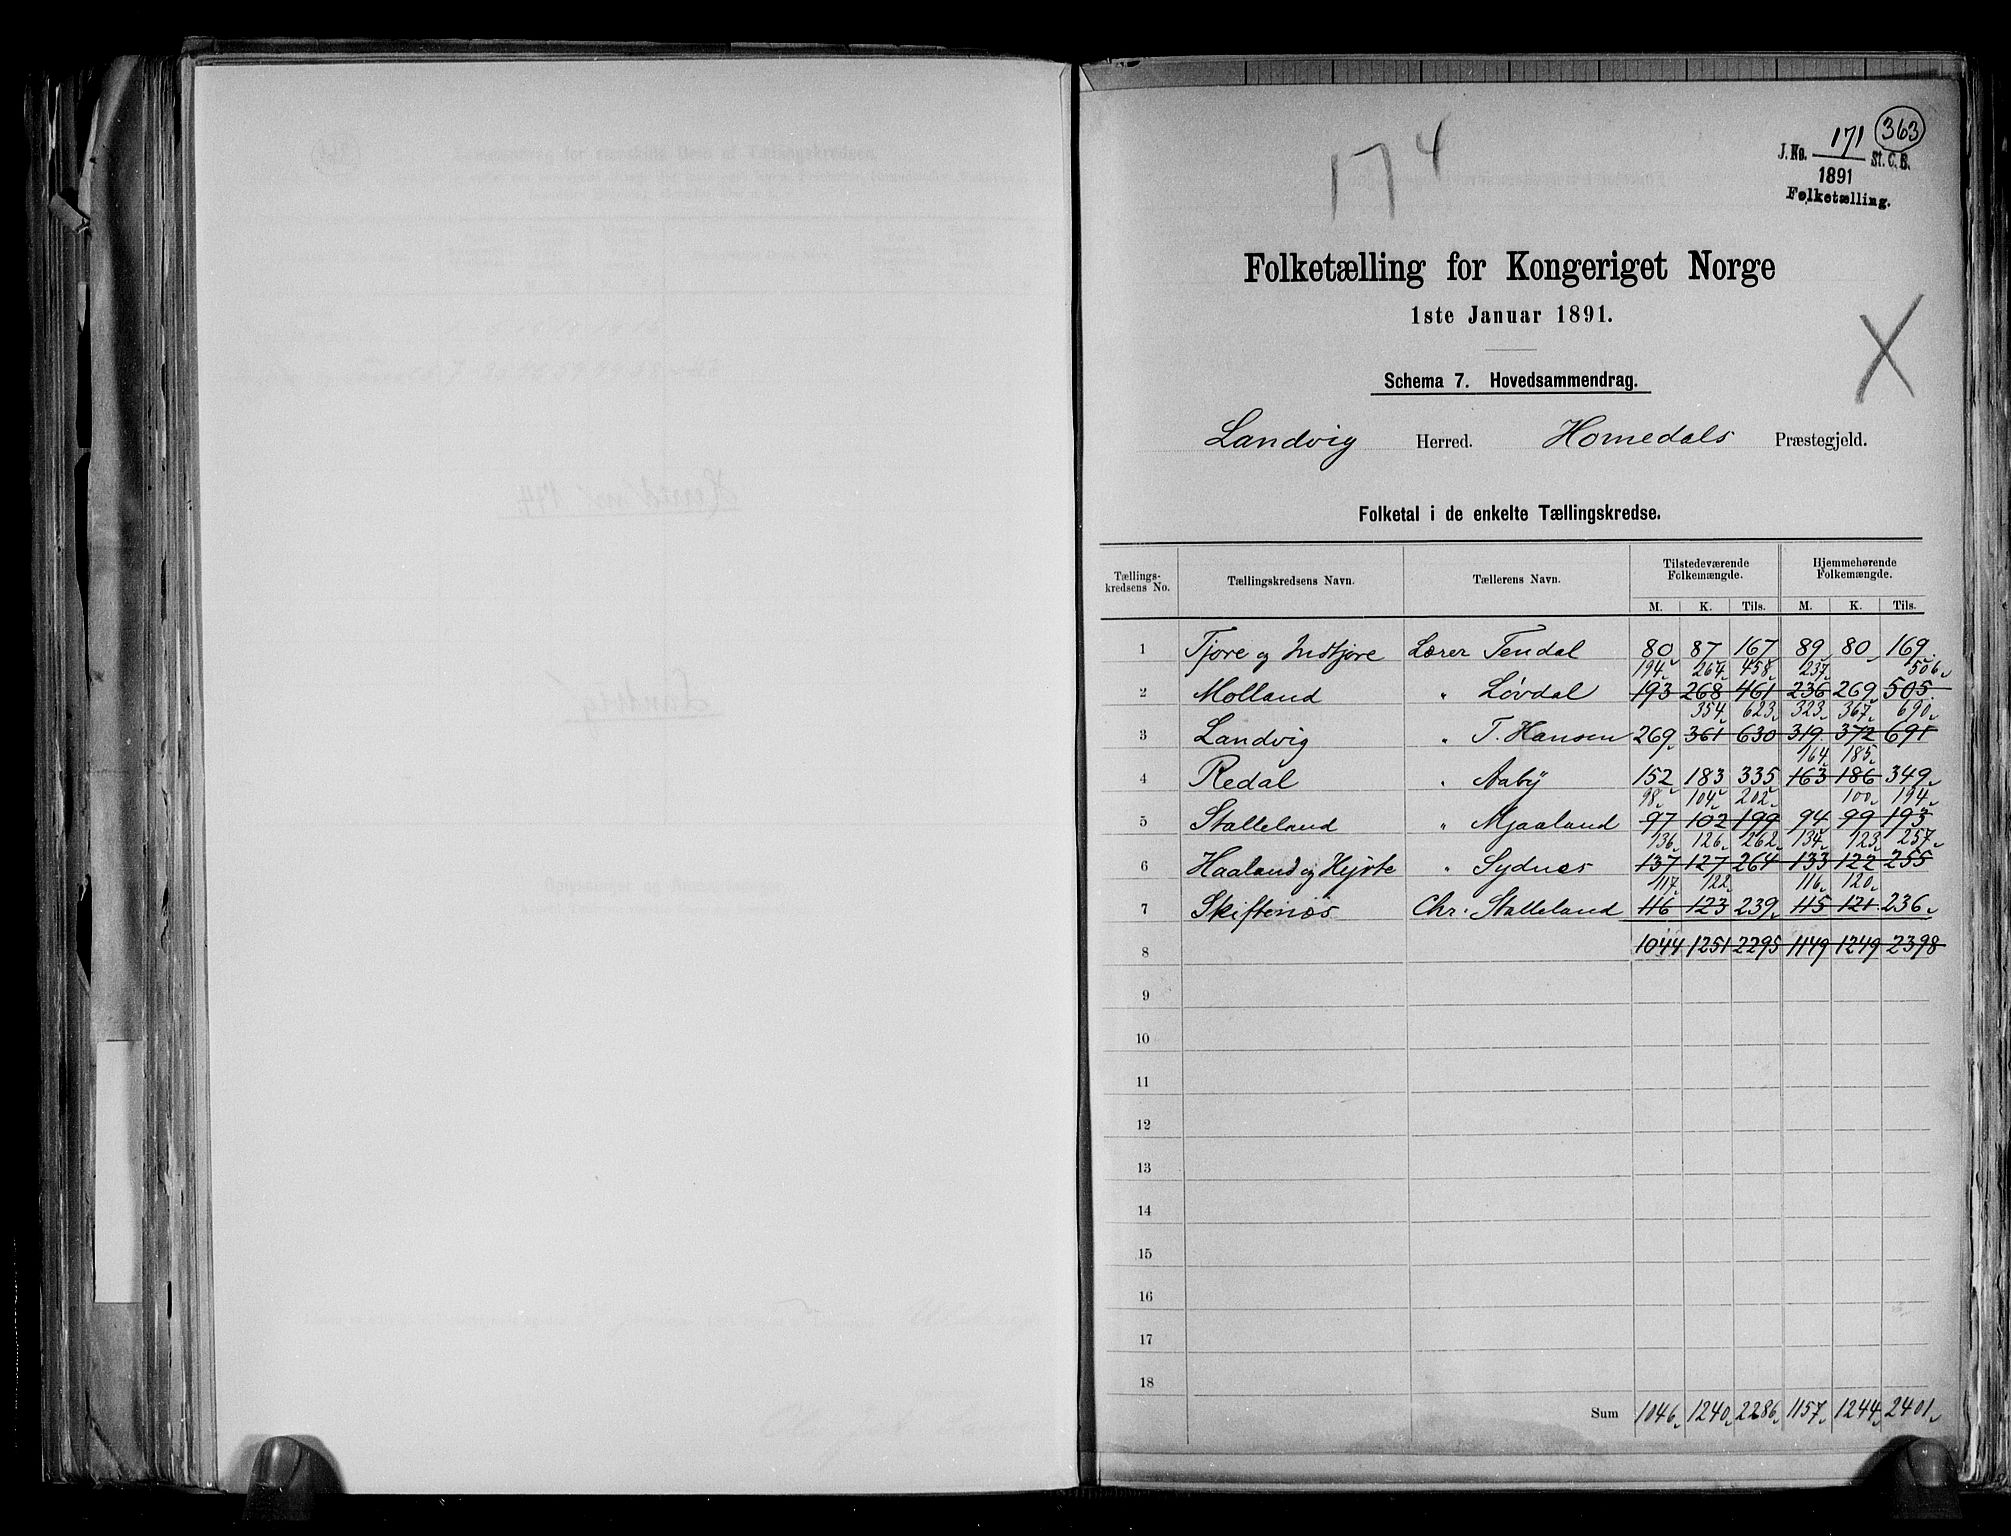 174
363
171
J. No. St. C. B.
1891
Folketælling.
Folketælling for Kongeriget Norge
1ste Januar 1891.
Schema 7. Hovedsammendrag.
Landvig Herred. Homedals Præstegjeld.
Folketal i de enkelte Tællingskredse.
Tællings-kredsens No. Tællingskredsens Navn. Tællerens Navn. Tilstedeværende Folkemængde. Hjemmehørende Folkemængde.
M. K. Tils. M. K. Tils.
1 Tjore og Indtjore Lærer Tendal 80 87 167 89 80 169
194 264 458 237 506
2 Molland " Løvdal 193 268 461 236 269 505
354 623 323 367 690
3 Landvig " T. Hansen 269 361 630 319 372 691
164 185
4 Redal " Aaby 152 183 335 163 186 349
98 104 202 100 194
5 Stalleland " Mjaaland 97 102 199 94 99 193
136 126 262 134 123 257
6 Haaland og Hejvte " Sydnes 137 127 264 133 122 255
117 122 116 120
7 Skiftenæs Chr. Stalleland 116 123 239 115 121 236
8 1044 1251 2295 1149 1249 2398
9
10
11
12
13
14
15
16
17
18
Sum 1046 1240 2286 1157 1244 2401